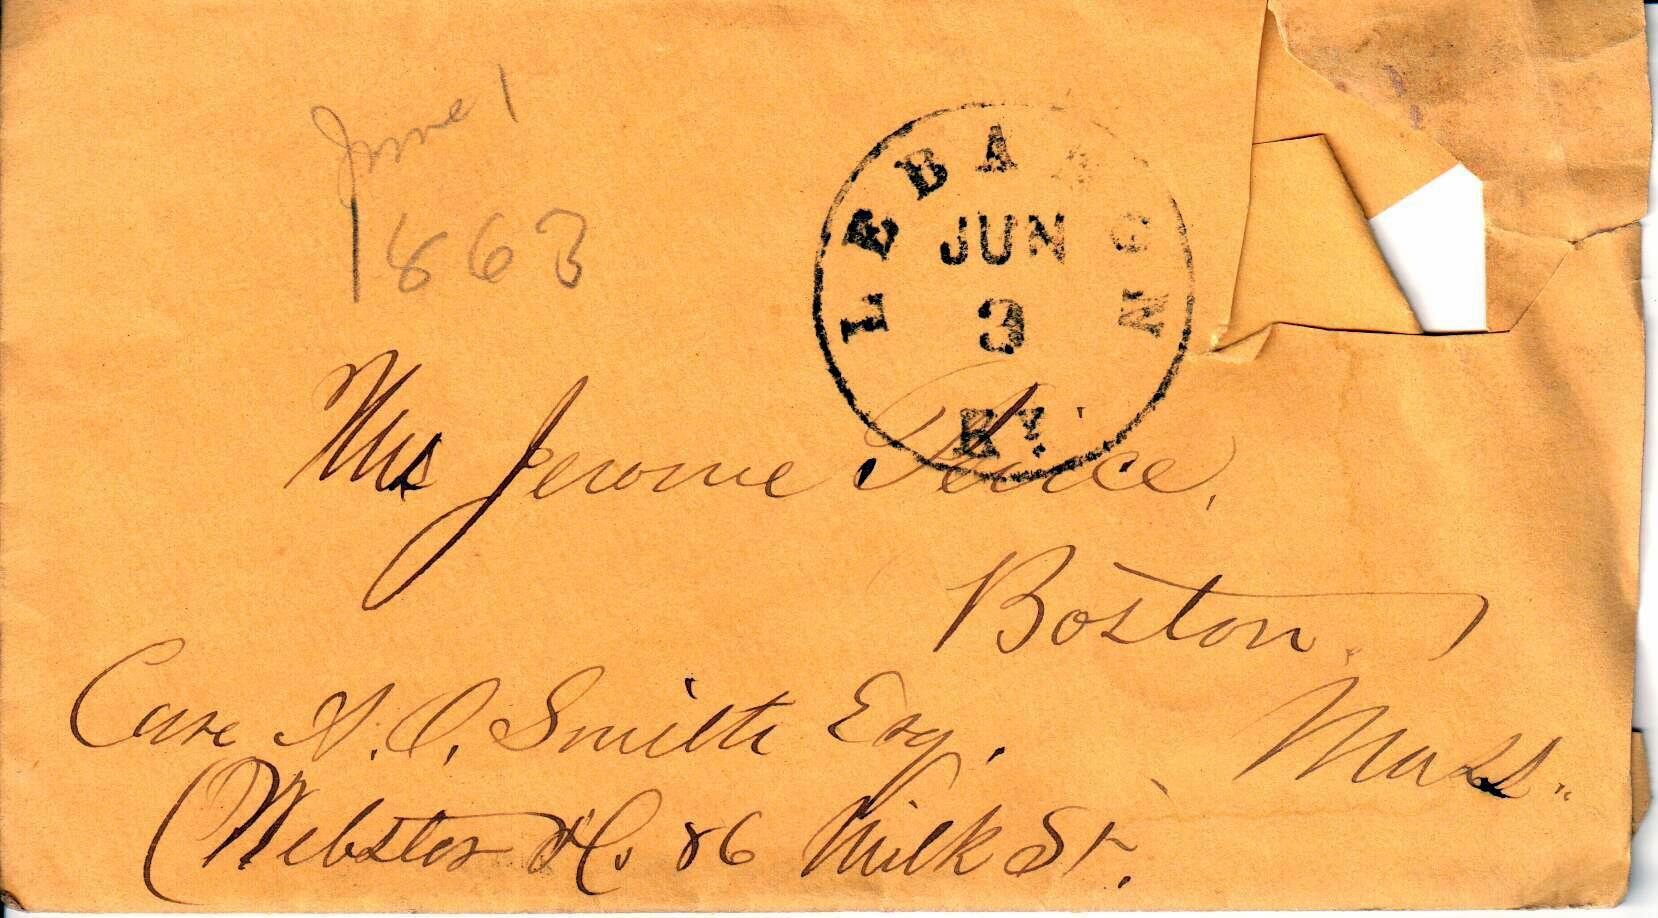 June 1
1863
LEBANON
JUN
3
KY.
Mrs Jerome Peirce,
Boston.
Mass.
Care A. O. Smith Esq.
(Webster & Co 86 Milk St.